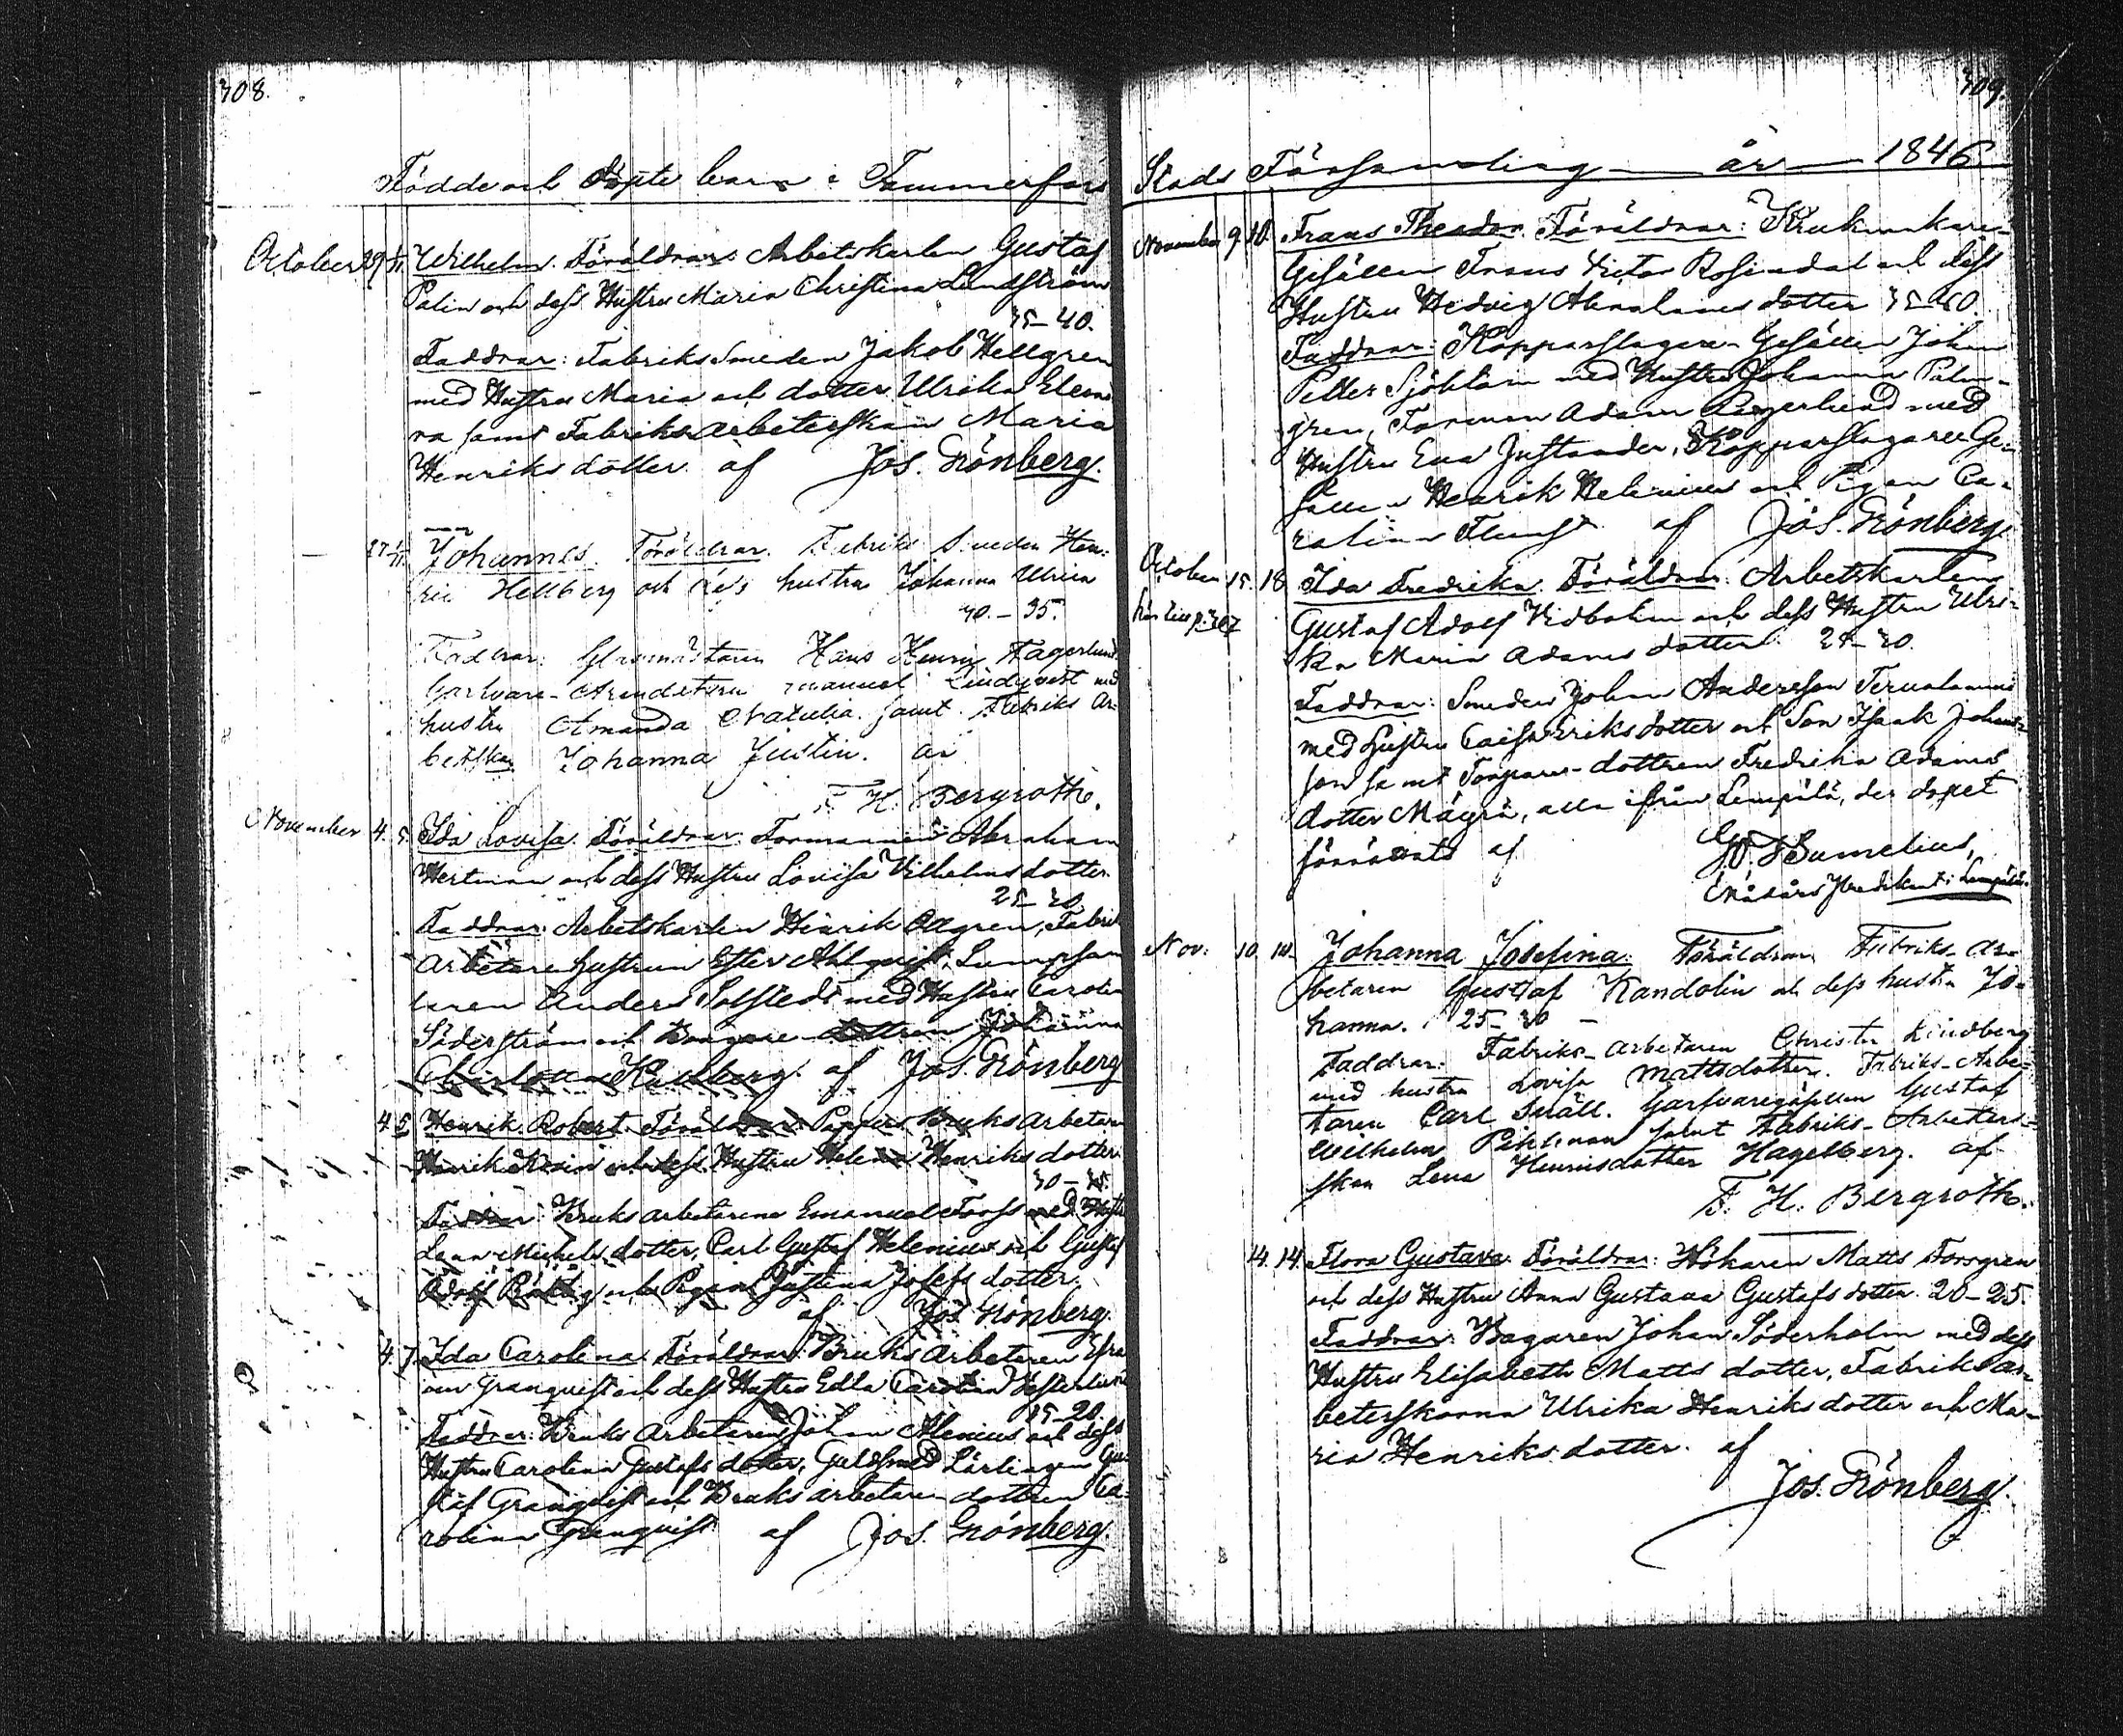 308.
Födde och Döpte barn i Tammerfors
October 29 Wilhelm. Föräldrar: Arbetskarlen Gustaf
Palin och dess Hustru Maria Christina Lundström
35-40.
Faddrar: Fabriks Smeden Jakob Hellgren
med Hustru Maria och dotter Ulrika Eleono
ra samt Fabriks arbeterskan Maria
Henriks dotter. af Jos. Grönberg.
27 Johannes. Föräldrar. Fabriks Smeden Hen-
ric Hellberg och dess hustru Johanna Ulrica
30.-35.
Faddrar: Glasmästaren Hans Henric Fagerlund
Garfvare-Arendatoren Emanuel Lindqvist med
hustru Amanda Natalia. samt. Fabriks Ar-
betskan Johanna Justin. av
F. H. Bergroth.
November 4. 5. Ida Lovisa. Föräldrar: Formannen Abraham
Hertman och dess Hustru Lovisa Vilhelms dotter
25-30.
Faddrar: Arbetskarlen Henrik Allgren, Fabriks
Arbetare hustrun Ester Ahlqvist,
Anders Solstedt med Hustru Carolin
Söderström och dottren Johanna
af Jos. Grönberg
4. 5. Henrik Robert. Föräldrar: Pappers Bruks arbetaren
Henrik och dess Hustru Helena Henriks dotter.
30-35.
Faddrar: Bruks arbetarene Emanuel Forss med Hustru
Lena Michels dotter, Carl Gustaf Helenius och Gustaf
Adolf och Pigan Justina Josefs dotter.
af Jos. Grönberg.
4. 7. Ida Carolina. Föräldrar: Bruks Arbetaren Efra
im Granquist och dess Hustru Edla Carolina
15-20.
Faddrar: Bruks Arbetaren Johan Alenius och dess
Hustru Carolina Gustafs dotter, Guldsmed Lärlingen Gu-
staf Granquist och Bruks arbetare dottren Ca-
rolina Granquist af Jos. Grönberg.
309.
Stads Församling år 1846
November 9. 10. Frans Theodor. Föräldrar: Krukmakare
Gesällen Frans Victor Rosendal och dess
Hustru Hedvig Abrahams dotter 35-40.
Faddrar: Kopparslagare-Gesällen Johan
Petter Sjöblom med Hustru Johanna Palm-
gren, Forman Adam Lagerlund med
Hustru Eva Justander, Kopparslagare Ge-
sällen Henrik Helenius och Pigan Ca-
rolina af Jos. Grönberg.
October 15. 18. Ida Fredrika. Föräldrar: Arbetskarlen
hör till p. 307 Gustaf Adolf Vidbohm och dess Hustru Ulri-
ka Maria Adams dotter. 25-30.
Faddrar: Smeden Johan Andersson
med Hustru Caisa Eriks dotter och Son Isaak Johans-
son samt Torpare-dottren Fredrika Adams
dotter Mäyrä, alla ifrån Lempälä, der dopet
förrättats af G. F. Sumelius,
Nådårs Predikant i Lempälä.
Nov: 10. 14. Johanna Josefina. Föräldrar Fabriks-ar-
betaren Gustaf Kandolin och dess hustru Jo-
hanna. 25-30
Faddrar: Fabriks-arbetaren Christer Lindberg
med hustru Lovisa Mattsdotter. Fabriks-Arbe-
taren Carl Snäll. Garfvaregesällen Gustaf
Wilhelm Pihlman samt Fabriks-Arbeters-
skan Lena Henricsdotter Hagelberg. af
F. H. Bergroth.
14. 14. Flora Gustava. Föräldrar: Hökaren Matts Forsgren
och dess Hustru Anna Gustava Gustafs dotter. 20-25.
Faddrar: Bagaren Johan Söderholm med dess
Hustru Elisabeth Matts dotter, Fabriks ar-
beterskorna Ulrika Henriks dotter och Ma-
ria Henriks dotter. af
Jos. Grönberg.